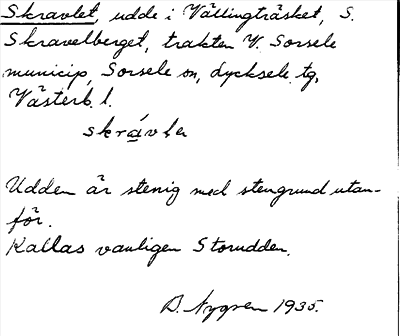 Skravlet, udde i Vällingträsket, S.
Skravelberget, trakten V. Sorsele
municip, Sorsele sn, Lycksele tg,
Västerb. l.
skrávlɐ
Udden är stenig med stengrund utan-
för.
Kallas vanligen Storudden.
D. Nygren 1935.